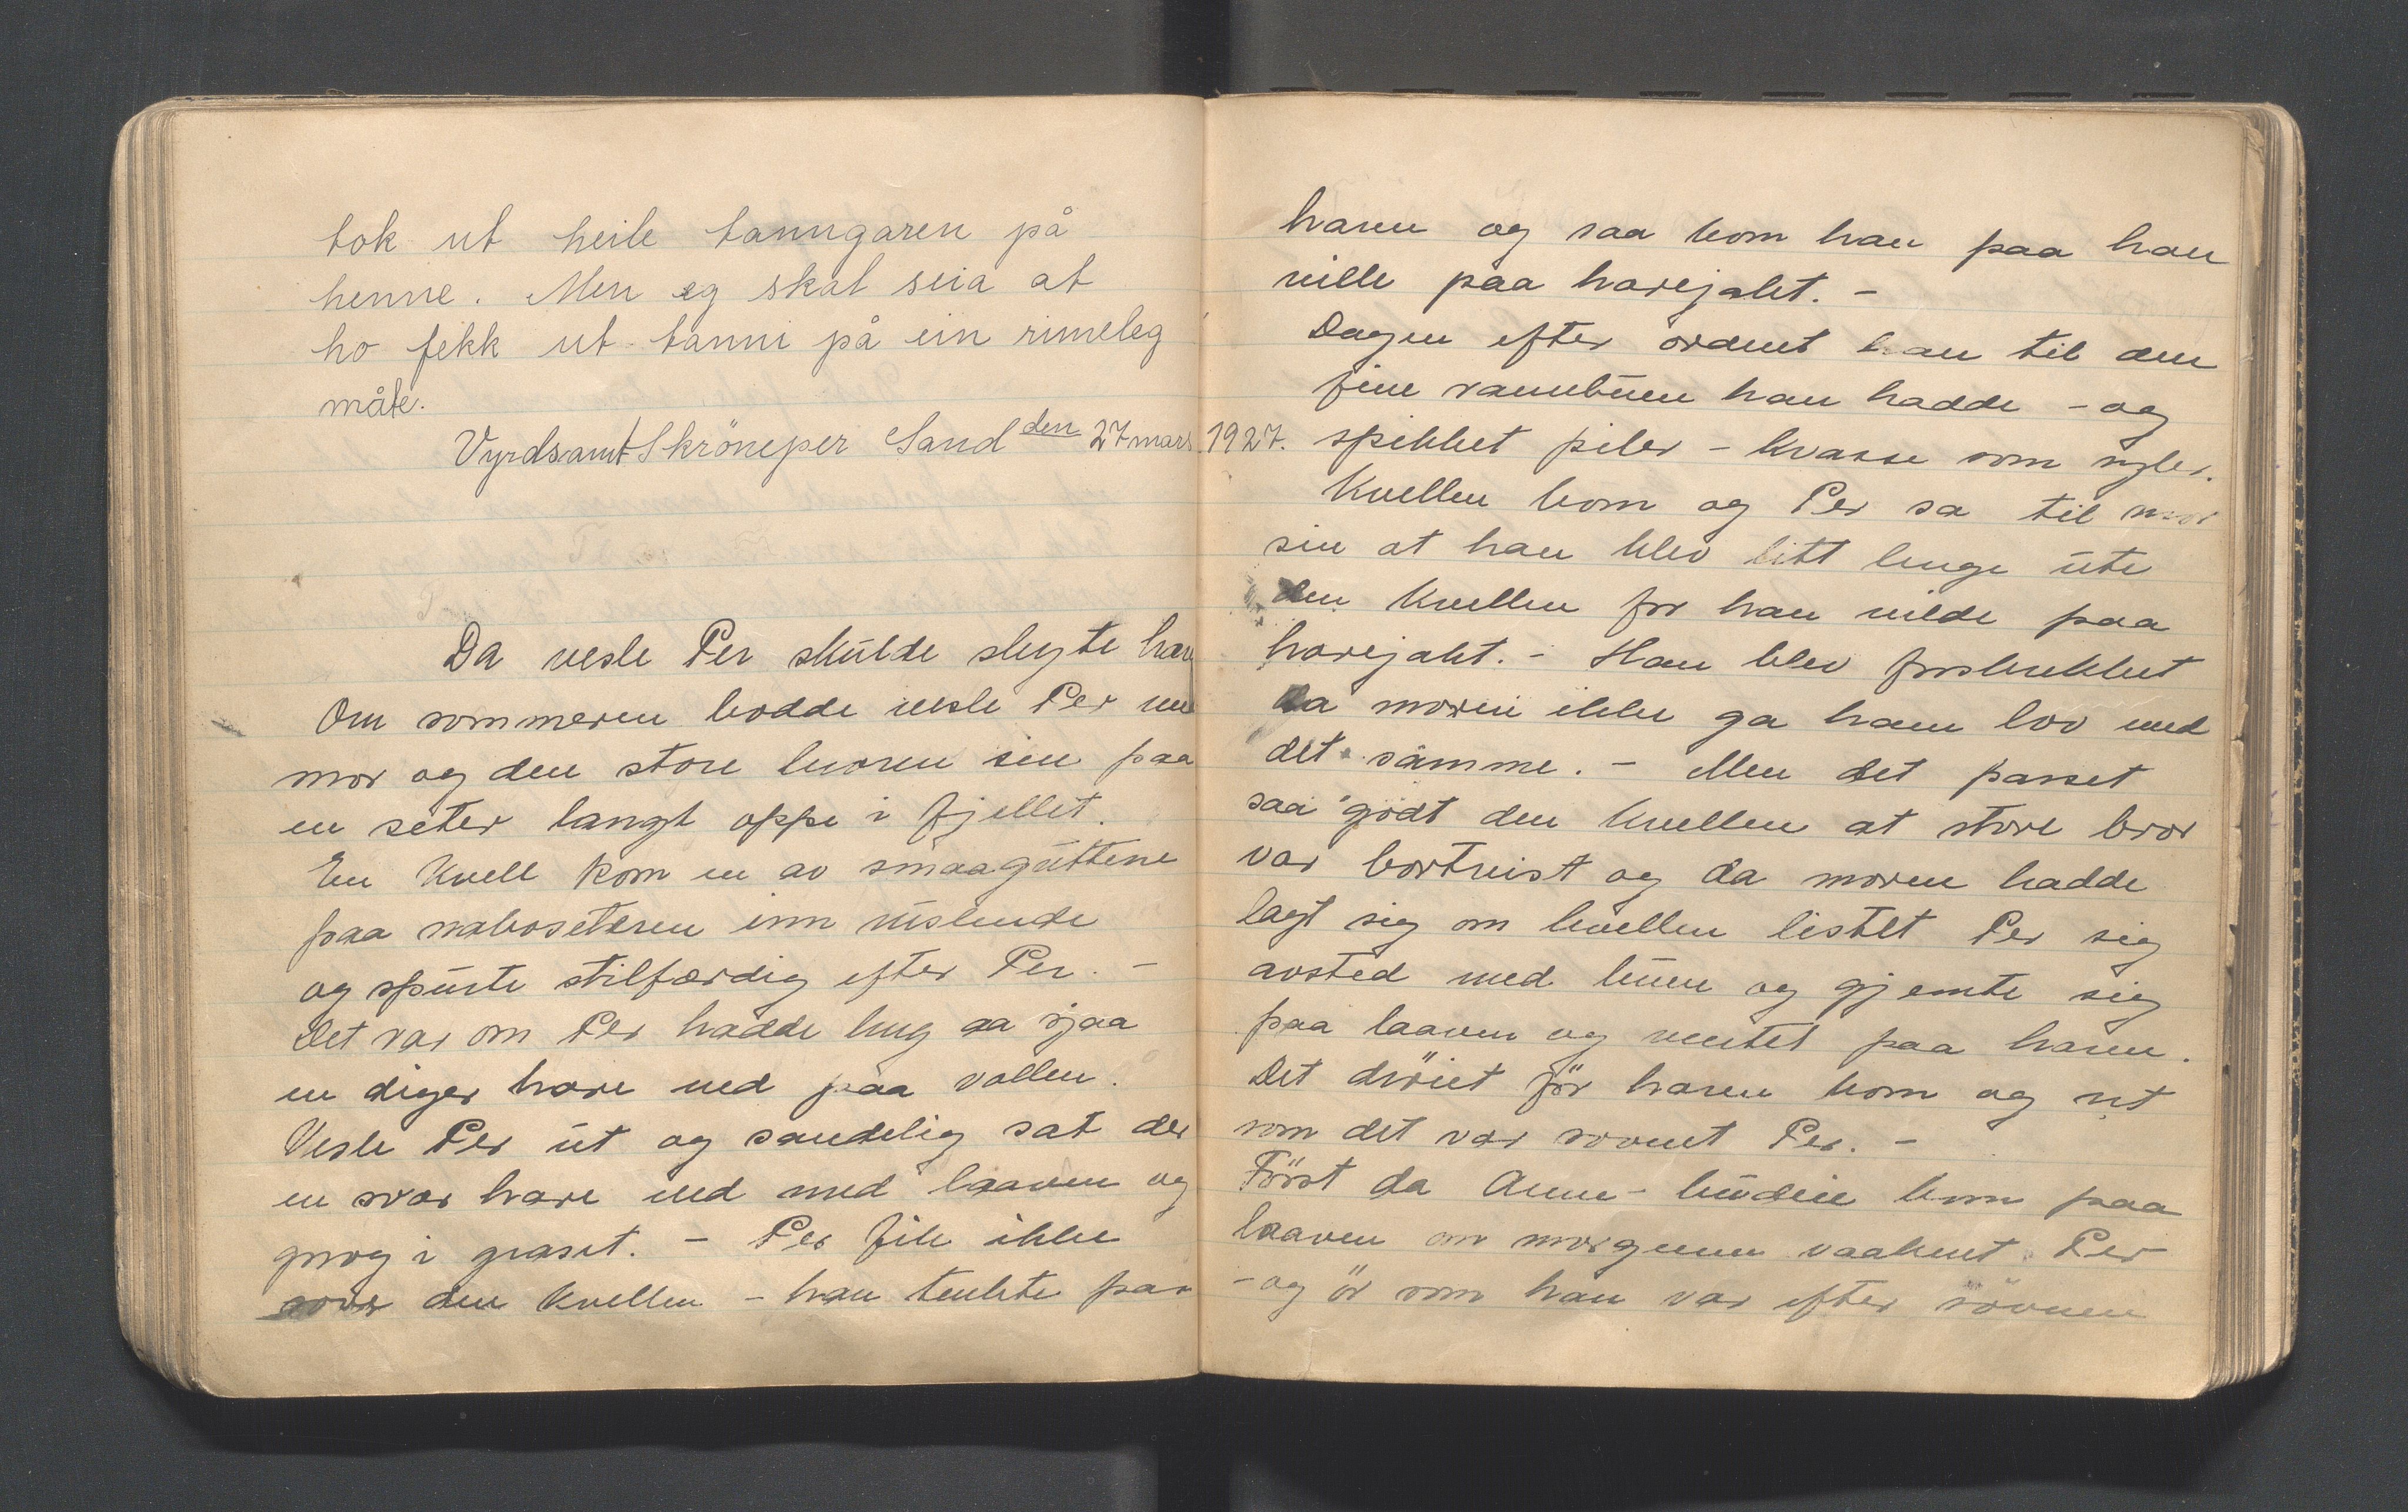 tok ut heile tanngaren på
henne. Men eg skal seia at
ho fekk ut tanni på ein rimeleg
måte.
Vyrdsamt Skröneper Sand den 27 mars 1927.
Da vesle Per skulde skyte haren
Om sommeren bodde vesle Per med
mor og den store broren sin paa
en seter langt oppe i fjellet.
En kvell kom en av smaaguttene
paa naboseteren inn ruslende
og spurte stilfærdig efter Per. -
Det var om Per hadde hug aa sjaa
en diger hare ned paa vollen.
Vesle Per ut og sandelig sat der
en svær hare ned med laaven og
gnog i graset. - Per fik ikke
sove den kvellen - han tenkte paa
haren og saa kom han paa han
ville paa harejakt. -
Dagen efter ordnet han til den
fine vannbuen han hadde - og
spikket piler - kvasse som syler.
Kvellen kom og Per sa til mor
sin at han blev litt lenge ute
den kvellen for han vilde paa
harejakt. - Han blev forskrekket
da moren ikke ga ham lov med
det samme. - Men det passet
saa godt den kvellen at store bror
var bortreist og da moren hadde
lagt sig om kvellen listet Per sig
avsted med buen og gjemte sig
paa laaven og ventet paa haren.
Det dröiet för haren kom og ret
som det var sovnet Per. -
Först da Anne- budeie kom paa
laaven om morgenen vaaknet Per
- og ör som han var efter sövnen